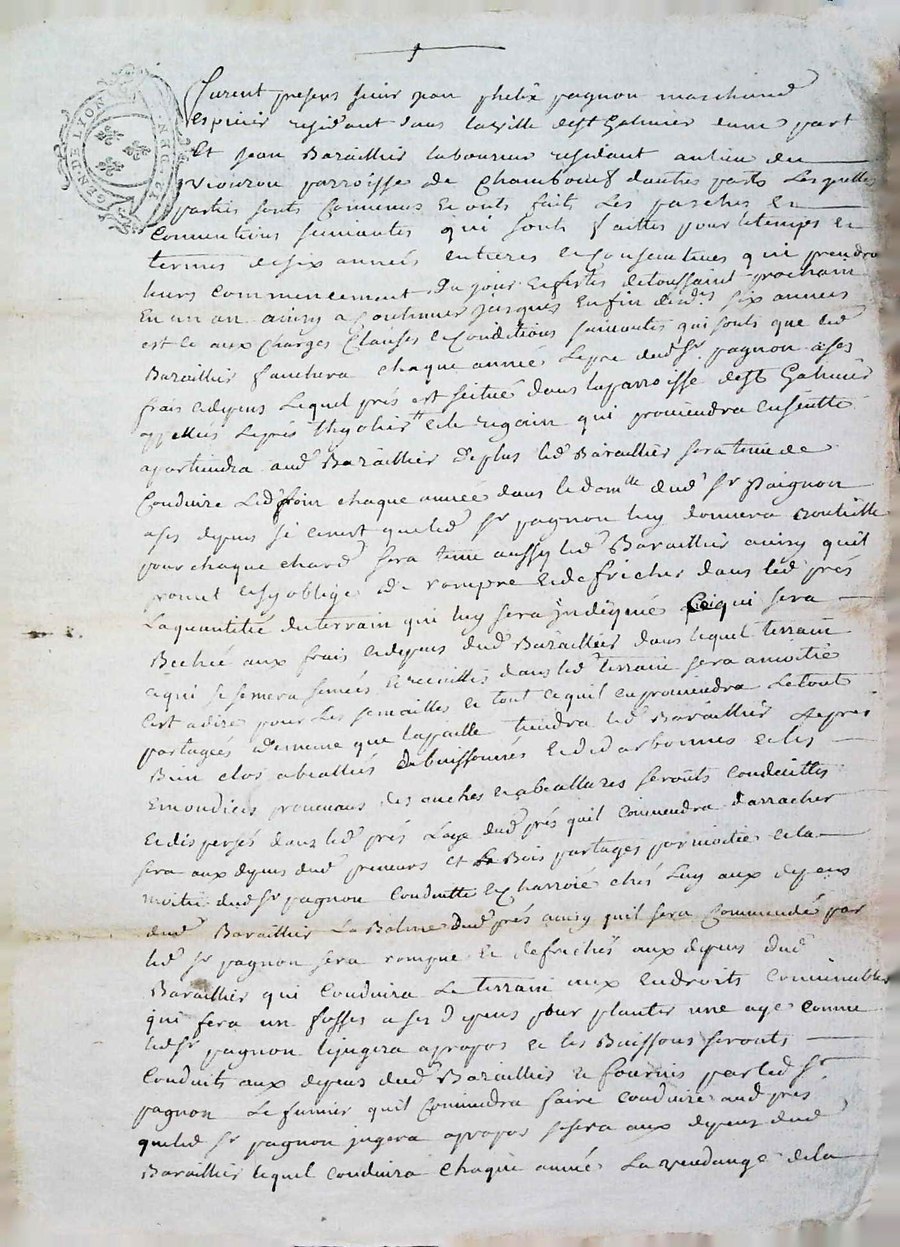 GEN. DE LYON
furent presens sieur jean phelix pagnon marchand
espicier residant dans la ville de st Galmier dune part
Et jean Barallier laboureur residant au lieu du
parroisse de Chambœuf dautres parts Lesquelles
partis sonts Convenus et onts faits Les pasches et
Conventions suivantes qui sonts faittes pour letemps et
termes de six années entieres et Consecutives qui prendro
leurs commencement Du jour et festes de toussaint prochain
En un an ainsy a Continuer jusques En fin desd. six années
est ce aux Charges Clauses et Conditions suivantes qui sonts que led
Barallier fauchera chaque année Lepré dud Sr pagnon a ses
frais et depens Lequel prés est scitué dans la parroisse de st Galmier
appellés Leprés et le regain qui proviendra ensuitte
apartiendra aud Barallier de plus led Barallier sera tenu de
Conduire Led foin chaque année dans le domlle dud Sr Paignon
a ses depens si cenest que led Sr pagnon luy donnera Bouteille
pour chaque chard sera tenu aussy led Barallier ainsy quil
promet et sy oblige de rompre et defricher dans led prés
La quantitié du terrain qui luy sera jndiqués qui sera
Bechée aux frais et depens dud Barallier dans lequel terrain
cequi se semera semés et recoeillis dans led terrain sera a moitié
Cest adire pour Les semailles et tout cequil en proviendra Letout
partagées de meme que la paille tiendra led Barallier Leprés
Bien clos abeallies Debuissonnés et et les
Emondures provenans des ruches et abeallures seronts conduittes
et dispersés dans led prés Laye dud prés quil Conviendra darracher
sera aux depens dud preneurs et le Bois partages par moitié et la
moitié dud Sr pagnon Conduitte et charroié chés Luy aux depens
dud Barallier La Balme Dud prés ainsy quil sera Commendé par
led Sr pagnon sera rompue et defrichés aux depens dud
Barallier qui Conduira Le terrain aux Endroits Convenables
qui fera un fosses a ses Depens pour planter une aye comme
led Sr pagnon lejugera apropos et les Buissons seronts
Conduits aux depens dud Barallier et fournis par led Sr
pagnon Le fumier quil Conviendra faire conduire aud prés
que led Sr pagnon jugera apropos sesera aux depens dud
Barallier lequel conduira Chaque année La vendange de la